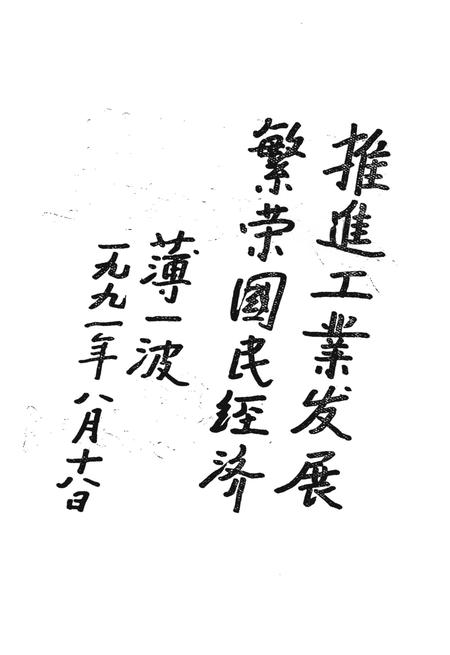 推進工業发展
繁荣國民經济
薄一波
一九九一年八月十八日